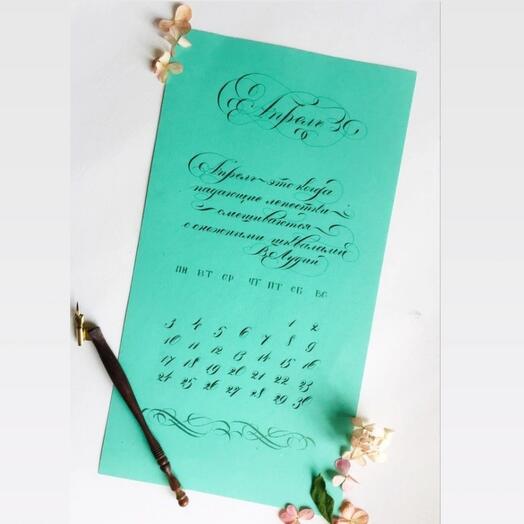 Апрель
Апрель-это когда
падающие лепестки
смешиваются
с снежными шквалами
В. Аудий
ПН ВТ СР ЧТ ПТ СБ ВС
1 2
3 4 5 6 7 8 9
10 11 12 13 14 15 16
17 18 19 20 21 22 23
24 25 26 27 28 29 30